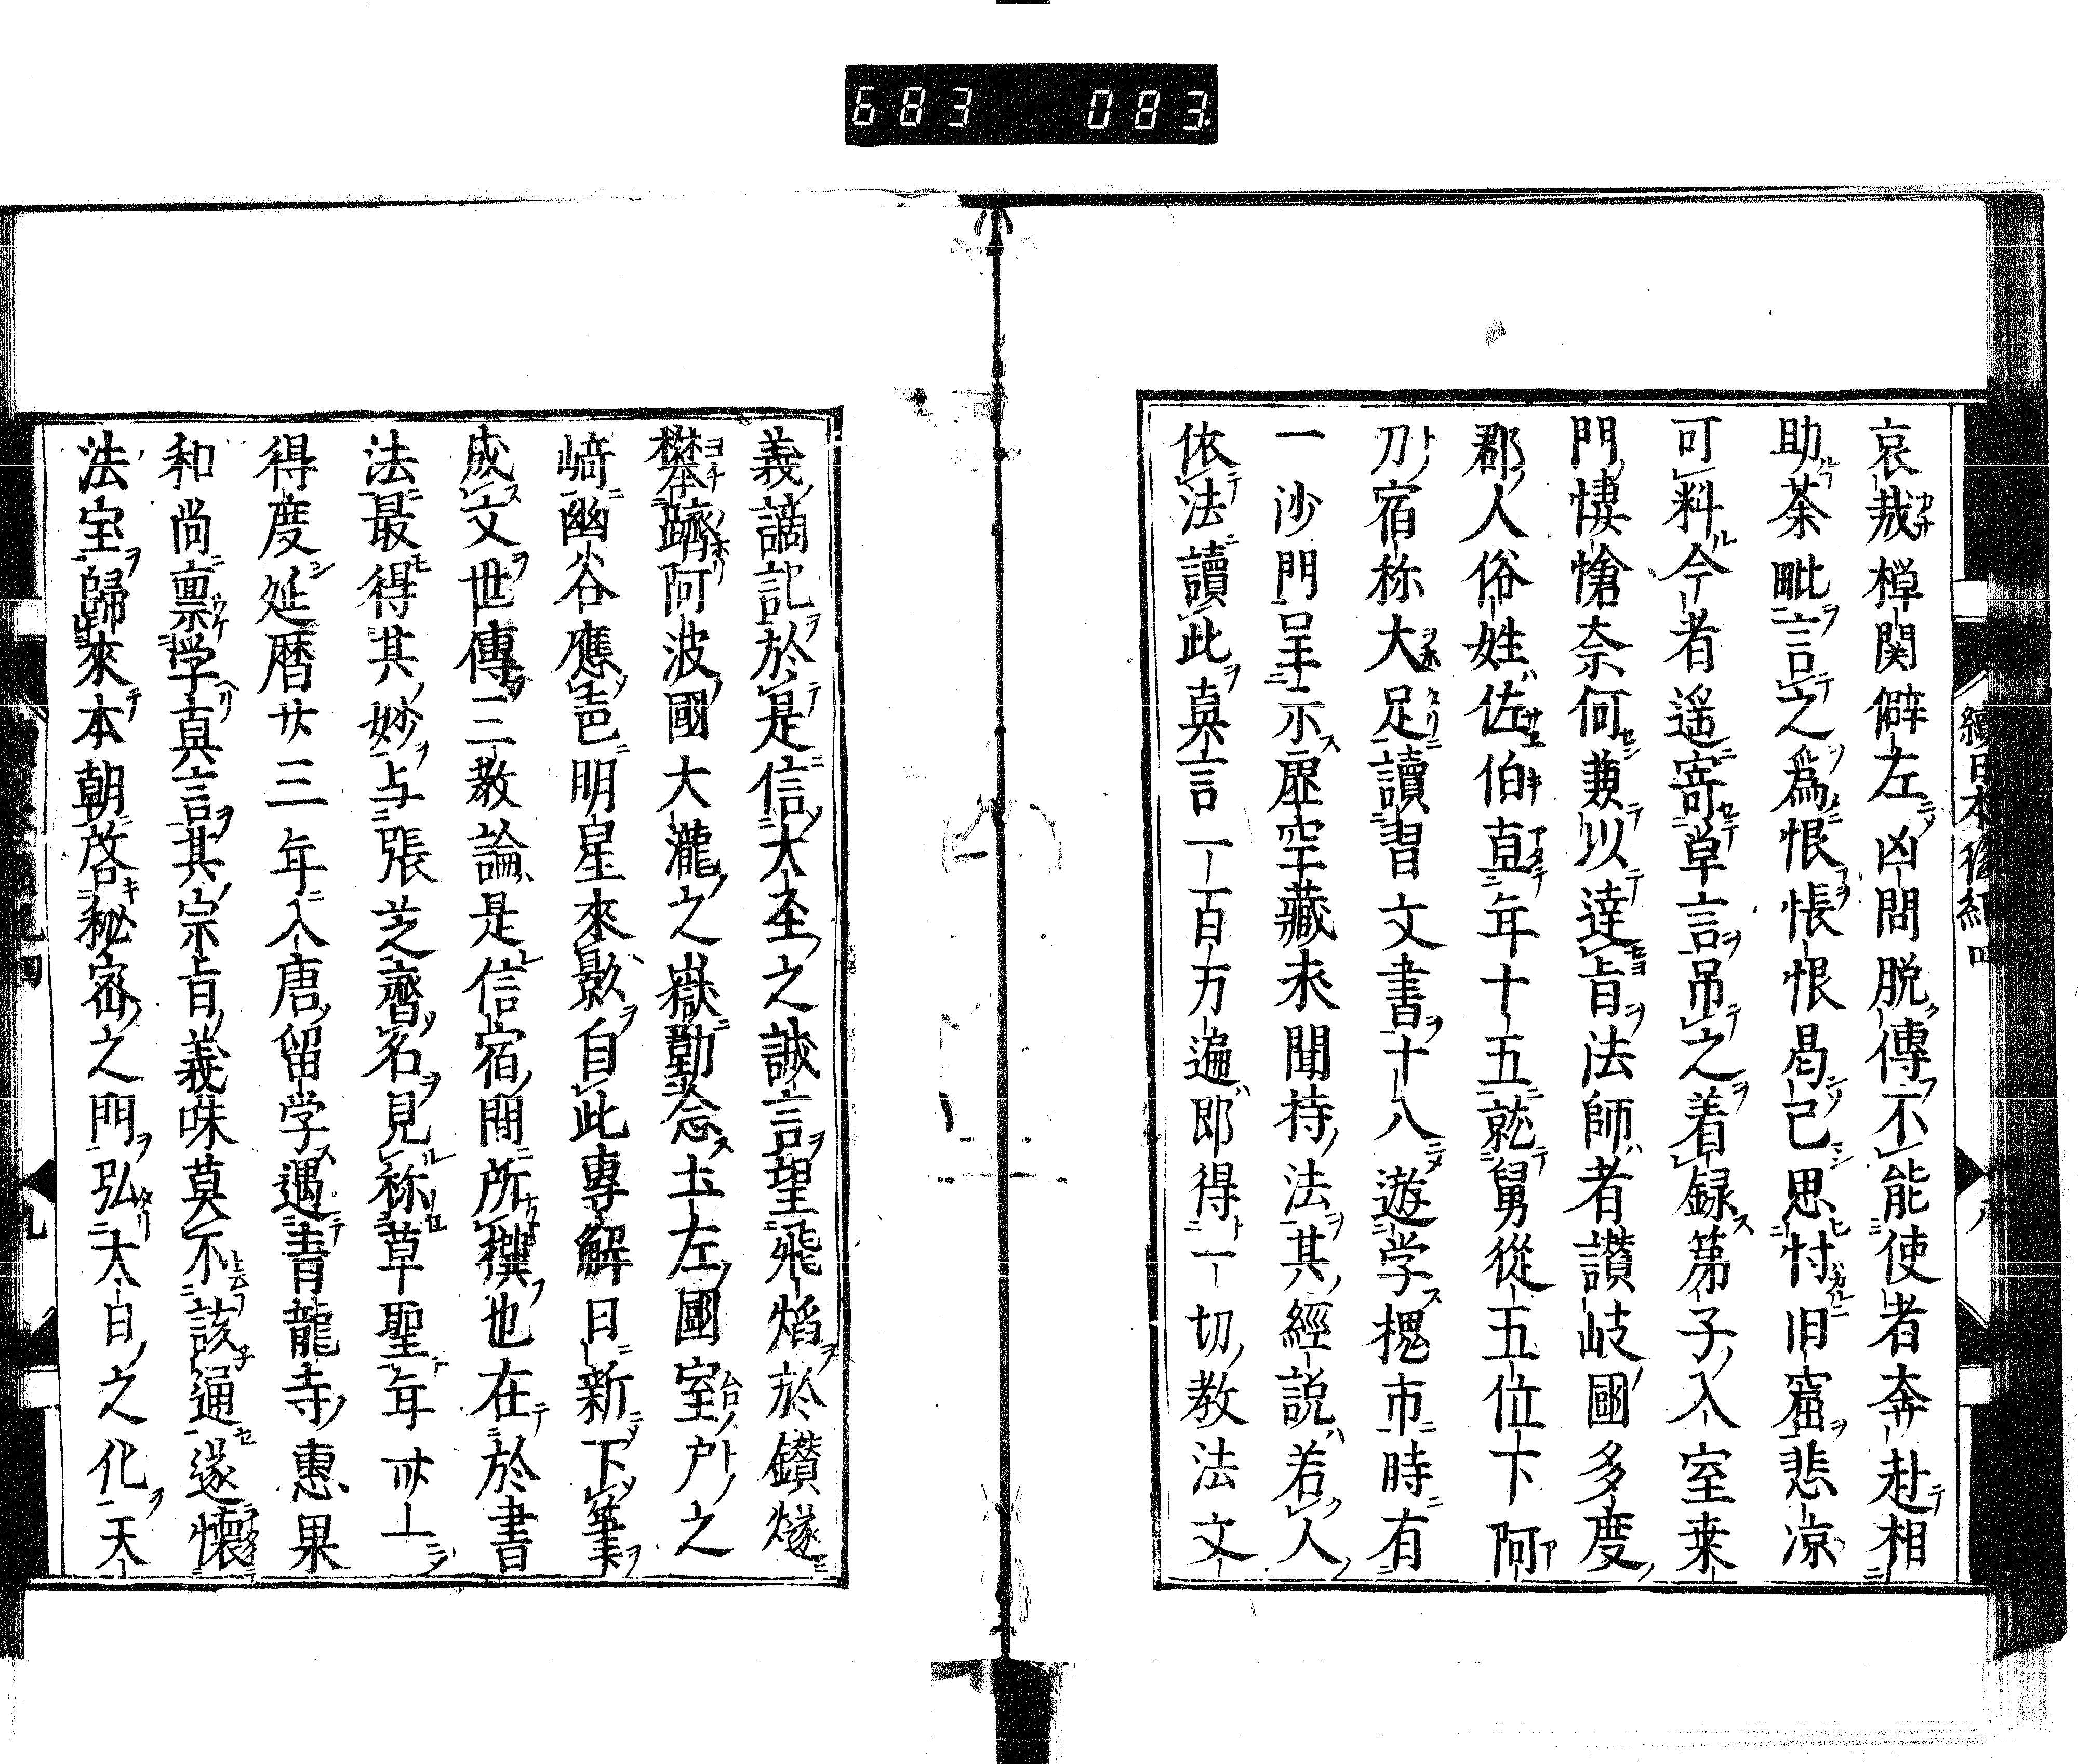 683 083
續日本後紀四
哀哉禅関僻左凶問脱傳不能使者奔赴相
助荼毗言之爲恨悵恨曷已思忖旧窟悲凉
可料今者遥寄単言吊之着録第子入室桒
門悽愴奈何兼以達旨法師者讃岐國多度
郡人俗姓佐伯直年十五就舅從五位下阿
刀宿祢大足讀習文書十八遊学槐市時有
一沙門呈示虚空藏求聞持法其經説若人
依法讀此真言一百万遍即得一切教法文
義諳記於是信大聖之誠言望飛焰於鑚燧
攀躋阿波國大瀧之嶽勤念土左國室戸之
﨑幽谷應聲明星來影自此專解日新下筆
成文世傳三教論是信宿間所撰也在於書
法最得其妙与張芝齊名見称草聖年卅一
得度延暦廿三年入唐留学遇青龍寺惠果
和尚禀学真言其宗旨義味莫不該通遂懐
法宝歸來本朝啓秘密之門弘大日之化天
九